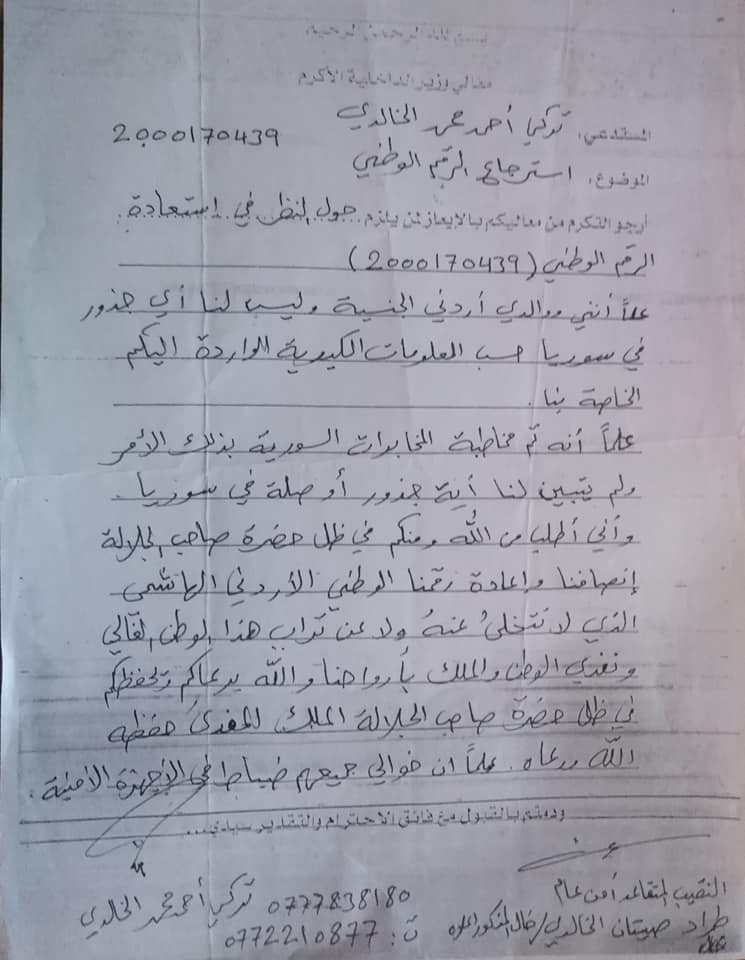 بسم الله الرحمن الرحيم
معالي وزير الداخلية الأكرم
المستدعي: تركي أحمد محمد الخالدي 2000170439
الموضوع: استرجاع الرقم الوطني
أرجو التكرم من معاليكم بالايعاز لمن يلزم حول النظر في إستعادة
الرقم الوطني (2000170439)
علماً أنني ووالدي أردني الجنسية وليس لنا أي جذور
في سوريا حسب المعلومات الكيدية الواردة اليكم
الخاصة بنا.
علماً أنه تم مخاطبة المخابرات السورية بذلك الأمر
ولم يتبين لنا أية جذور أو صلة في سوريا.
وأني أطلب من الله ومنكم في ظل حضرة صاحب الجلالة
إنصافنا وإعادة رقمنا الوطني الأردني الهاشمي
الذي لا نتخلى عنهُ ولا عن تراب هذا الوطن الغالي
ونفدي الوطن والملك بأرواحنا والله يرعاكم ويحفظكم
في ظل حضرة صاحب الجلالة الملك المفدى حفظه
الله ورعاه. علماً ان خوالي جميعهم ضباط في الأجهزة الأمنية.
ودمتم بالقبول مع فائق الاحترام والتقدير سيدي...
النقيب المتقاعد أمن عام
طراد صيتان الخالدي/خال المذكور اعلاه
0777838180 تركي أحمد محمد الخالدي
ت: 0772210877